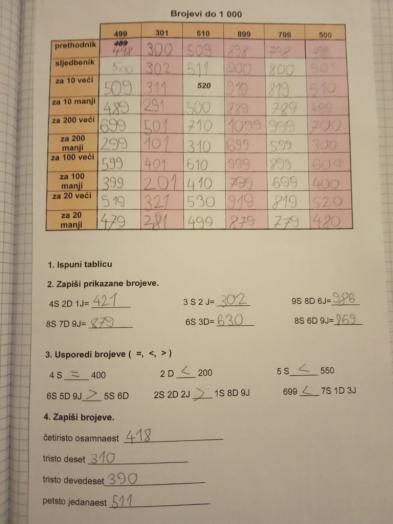 Brojevi do 1 000
499 301 510 899 799 500
prethodnik 498 300 509 898 798
sljedbenik 500 302 511 900 800 501
za 10 veći 509 311 520 910 819 510
za 10 manji 489 291 500 889 789
za 200 veći 699 501 710 1099 999 700
za 200 manji 299 101 310 699 599 300
za 100 veći 599 401 610 999 899 600
za 100 manji 399 201 410 799 699 400
za 20 veći 519 321 530 919 819 520
za 20 manji 479 281 499 879 779 480
1. Ispuni tablicu
2. Zapiši prikazane brojeve.
4S 2D 1J= 421 3 S 2 J= 302 9S 8D 6J= 986
8S 7D 9J= 879 6S 3D= 630 8S 6D 9J= 869
3. Usporedi brojeve ( =, <, > )
4 S = 400 2 D < 200 5 S < 550
6S 5D 9J > 5S 6D 2S 2D 2J > 1S 8D 9J 699 < 7S 1D 3J
4. Zapiši brojeve.
četiristo osamnaest 418
tristo deset 310
tristo devedeset 390
petsto jedanaest 511